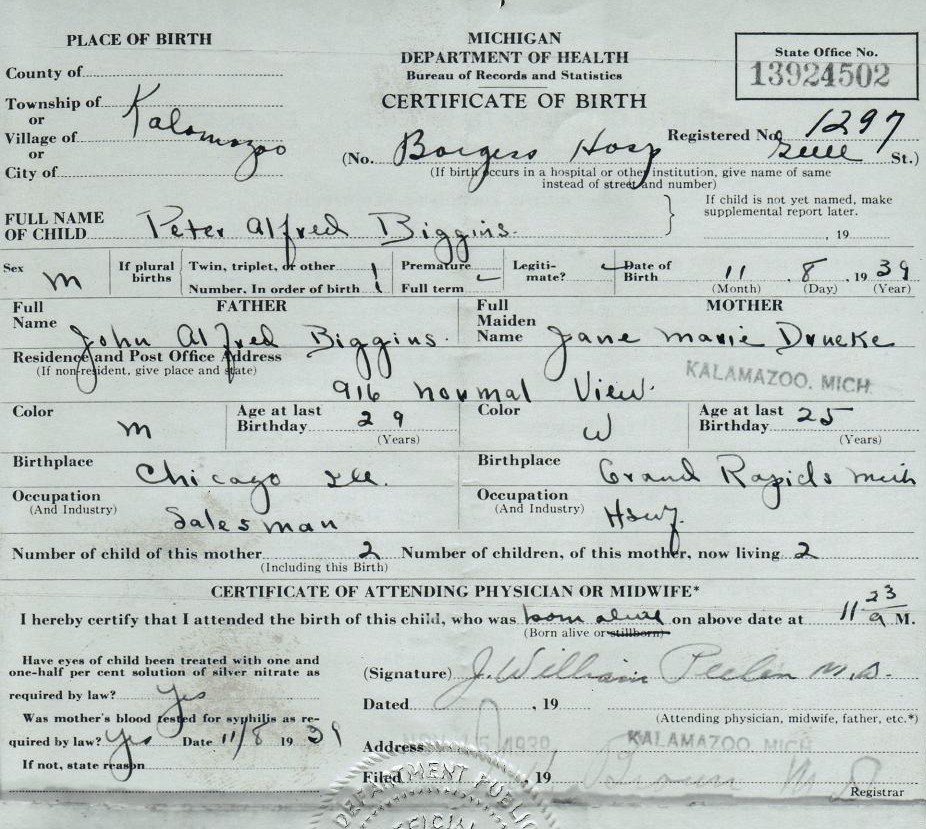 PLACE OF BIRTH
County of
Township of
or
Village of Kalamazoo
or
City of
MICHIGAN
DEPARTMENT OF HEALTH
Bureau of Records and Statistics
CERTIFICATE OF BIRTH
State Office No.
13924502
Registered No. 1297
(No. Borgess Hosp St.)
(If birth occurs in a hospital or other institution, give name of same
instead of street and number)
FULL NAME
OF CHILD Peter Alfred Biggins
If child is not yet named, make
supplemental report later.
, 19
Sex m
If plural
births
Twin, triplet, or other
Number. In order of birth
Premature
Full term
Legiti-
mate?
Date of
Birth 11 8, 1939
(Month) (Day) (Year)
FATHER
Full
Name John Alfred Biggins
MOTHER
Full
Maiden
Name Jane Marie Drueke
Residence and Post Office Address
(If non-resident, give place and state)
916 Normal View
KALAMAZOO, MICH.
Color m
Age at last
Birthday 29
(Years)
Color W
Age at last
Birthday 25
(Years)
Birthplace Chicago Ill.
Birthplace Grand Rapids Mich
Occupation
(And Industry) Salesman
Occupation
(And Industry) Hswf.
Number of child of this mother 2
(Including this Birth)
Number of children, of this mother, now living 2
CERTIFICATE OF ATTENDING PHYSICIAN OR MIDWIFE*
I hereby certify that I attended the birth of this child, who was born alive on above date at 11 23 M.
(Born alive or stillborn)
Have eyes of child been treated with one and
one-half per cent solution of silver nitrate as
required by law? Yes
Was mother's blood tested for syphilis as re-
quired by law? Yes Date 11/8 1939
If not, state reason
(Signature) J. William Peelen M.D.
Dated , 19
(Attending physician, midwife, father, etc.*)
Address KALAMAZOO, MICH
Filed , 19
Registrar
DEPARTMENT PUBLIC
OFFICIAL